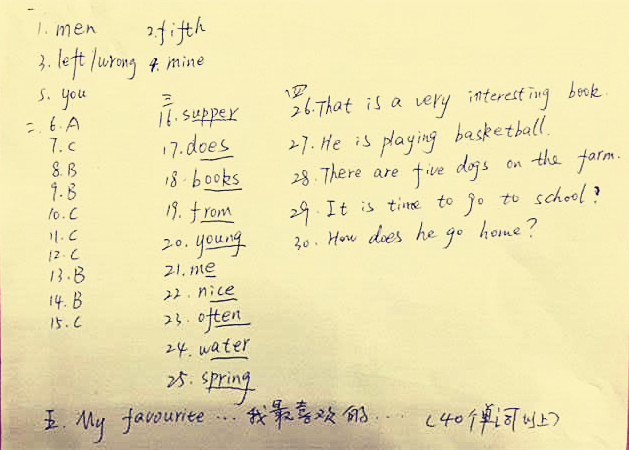 一
1. men 2. fifth
3. left/wrong 4. mine
5. you
二. 6. A
7. C
8. B
9. B
10. C
11. C
12. C
13. B
14. B
15. C
三
16. supper
17. does
18. books
19. from
20. young
21. me
22. nice
23. often
24. water
25. spring
四
26. That is a very interesting book.
27. He is playing basketball.
28. There are five dogs on the farm.
29. It is time to go to school?
30. How does he go home?
五. My favourite ... 我最喜欢的... (40个单词以上)